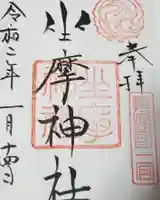 奉拝
坐摩神社
令和二年一月十四日